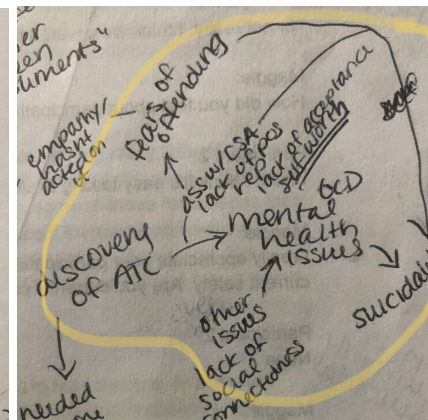 een
uments"
empathy/
hasn't
acted on
it
fear of
offending
assw/CSA
lack of pos
rep
lack of acceptance
self worth
OCD
discovery
of ATC
mental
health
issues
suicidal
other
issues
lack of
social
connectedness
needed